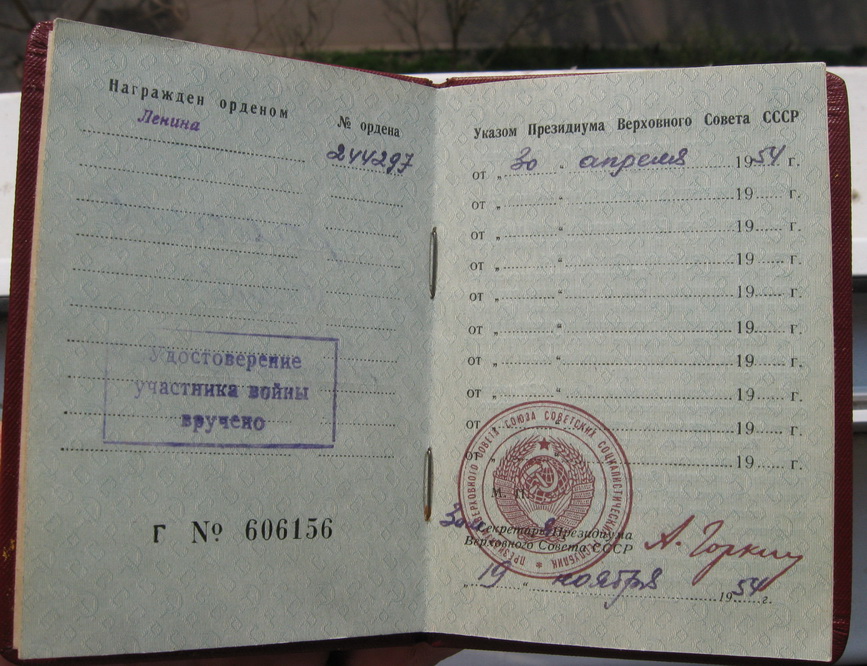 Награжден орденом
№ ордена
Ленина
244297
Удостоверение
участника войны
вручено
Г № 606156
Указом Президиума Верховного Совета СССР
от „ 30 “ апреля 1954 г.
от „ “ 19 г.
от „ “ 19 г.
от „ “ 19 г.
от „ “ 19 г.
от „ “ 19 г.
от „ “ 19 г.
от „ “ 19 г.
от „ “ 19 г.
от „ “ 19 г.
ПРЕЗИДИУМ ВЕРХОВНОГО СОВЕТА СОЮЗА СОВЕТСКИХ СОЦИАЛИСТИЧЕСКИХ РЕСПУБЛИК
М. П.
Секретарь Президиума
Верховного Совета СССР
А. Горкин
„ 19 “ ноября 1954 г.